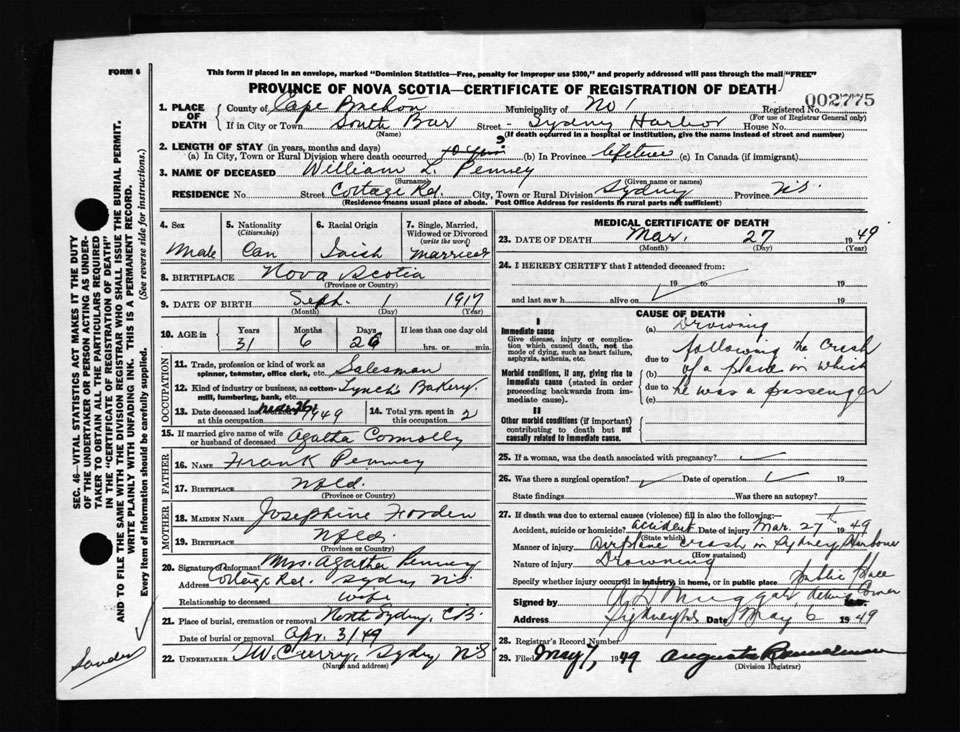 FORM 6
This form if placed in an envelope, marked "Dominion Statistics—Free, penalty for improper use $300," and properly addressed will pass through the mail "FREE"
PROVINCE OF NOVA SCOTIA—CERTIFICATE OF REGISTRATION OF DEATH
002775
1. PLACE OF DEATH
County of Cape Breton Municipality of No 1 Registered No.
(For use of Registrar General only)
If in City or Town South Bar Street - Sydney Harbor House No.
(Name) (If death occurred in a hospital or institution, give the name instead of street and number)
2. LENGTH OF STAY (in years, months and days)
(a) In City, Town or Rural Division where death occurred (b) In Province lifetime (c) In Canada (if immigrant)
3. NAME OF DECEASED William L. Penney
(Surname) (Given name or names)
RESIDENCE No. Street Cottage Rd. City, Town or Rural Division Sydney Province N.S.
(Residence means usual place of abode. Post Office Address for residents in rural parts not sufficient)
4. Sex
Male
5. Nationality
(Citizenship)
Can
6. Racial Origin
7. Single, Married, Widowed or Divorced
(write the word)
Married
8. BIRTHPLACE Nova Scotia
(Province or Country)
9. DATE OF BIRTH Sept. 1 1917
(Month) (Day) (Year)
10. AGE in
Years Months Days If less than one day old
31 6 26 hrs. or min.
OCCUPATION
11. Trade, profession or kind of work as spinner, teamster, office clerk, etc. Salesman
12. Kind of industry or business, as cotton-mill, lumbering, bank, etc. Lynch's Bakery.
13. Date deceased last worked at this occupation Mar 26 1949
14. Total yrs. spent in this occupation 2
15. If married give name of wife or husband of deceased Agatha Connolly
FATHER
16. NAME Frank Penney
17. BIRTHPLACE Nfld.
(Province or Country)
MOTHER
18. MAIDEN NAME Josephine
19. BIRTHPLACE Nfld.
(Province or Country)
20. Signature of informant Mrs. Agatha Penney
Address Cottage Rd. Sydney N.S.
Relationship to deceased wife
21. Place of burial, cremation or removal North Sydney, C.B.
Date of burial or removal Apr. 3/49
22. UNDERTAKER T.W. Curry, Sydney N.S.
(Name and address)
MEDICAL CERTIFICATE OF DEATH
23. DATE OF DEATH Mar. 27 1949
(Month) (Day) (Year)
24. I HEREBY CERTIFY that I attended deceased from:
19 to 19
and last saw h alive on 19
CAUSE OF DEATH
I
Immediate cause
Give disease, injury or complication which caused death, not the mode of dying, such as heart failure, asphyxia, asthenia, etc.
(a) Drowning
due to following the crash
Morbid conditions, if any, giving rise to immediate cause (stated in order proceeding backwards from immediate cause).
(b) of a plane in which
due to
(c) he was a passenger
II
Other morbid conditions (if important) contributing to death but not causally related to immediate cause.
25. If a woman, was the death associated with pregnancy?
26. Was there a surgical operation? Date of operation 19
State findings Was there an autopsy?
27. If death was due to external causes (violence) fill in also the following:
Accident, suicide or homicide? accident Date of injury Mar. 27 1949
(State which)
Manner of injury Airplane crash in Sydney Harbour
(How sustained)
Nature of injury Drowning
Specify whether injury occurred in industry, in home, or in public place public place
Signed by
Address Date May 6 1949
28. Registrar's Record Number
29. Filed May 7, 1949
(Division Registrar)
SEC. 46—VITAL STATISTICS ACT MAKES IT THE DUTY
OF THE UNDERTAKER OR PERSON ACTING AS UNDER-
TAKER TO OBTAIN ALL THE PARTICULARS REQUIRED
IN THE "CERTIFICATE OF REGISTRATION OF DEATH"
AND TO FILE THE SAME WITH THE DIVISION REGISTRAR WHO SHALL ISSUE THE BURIAL PERMIT.
WRITE PLAINLY WITH UNFADING INK. THIS IS A PERMANENT RECORD.
Every item of information should be carefully supplied. (See reverse side for instructions.)